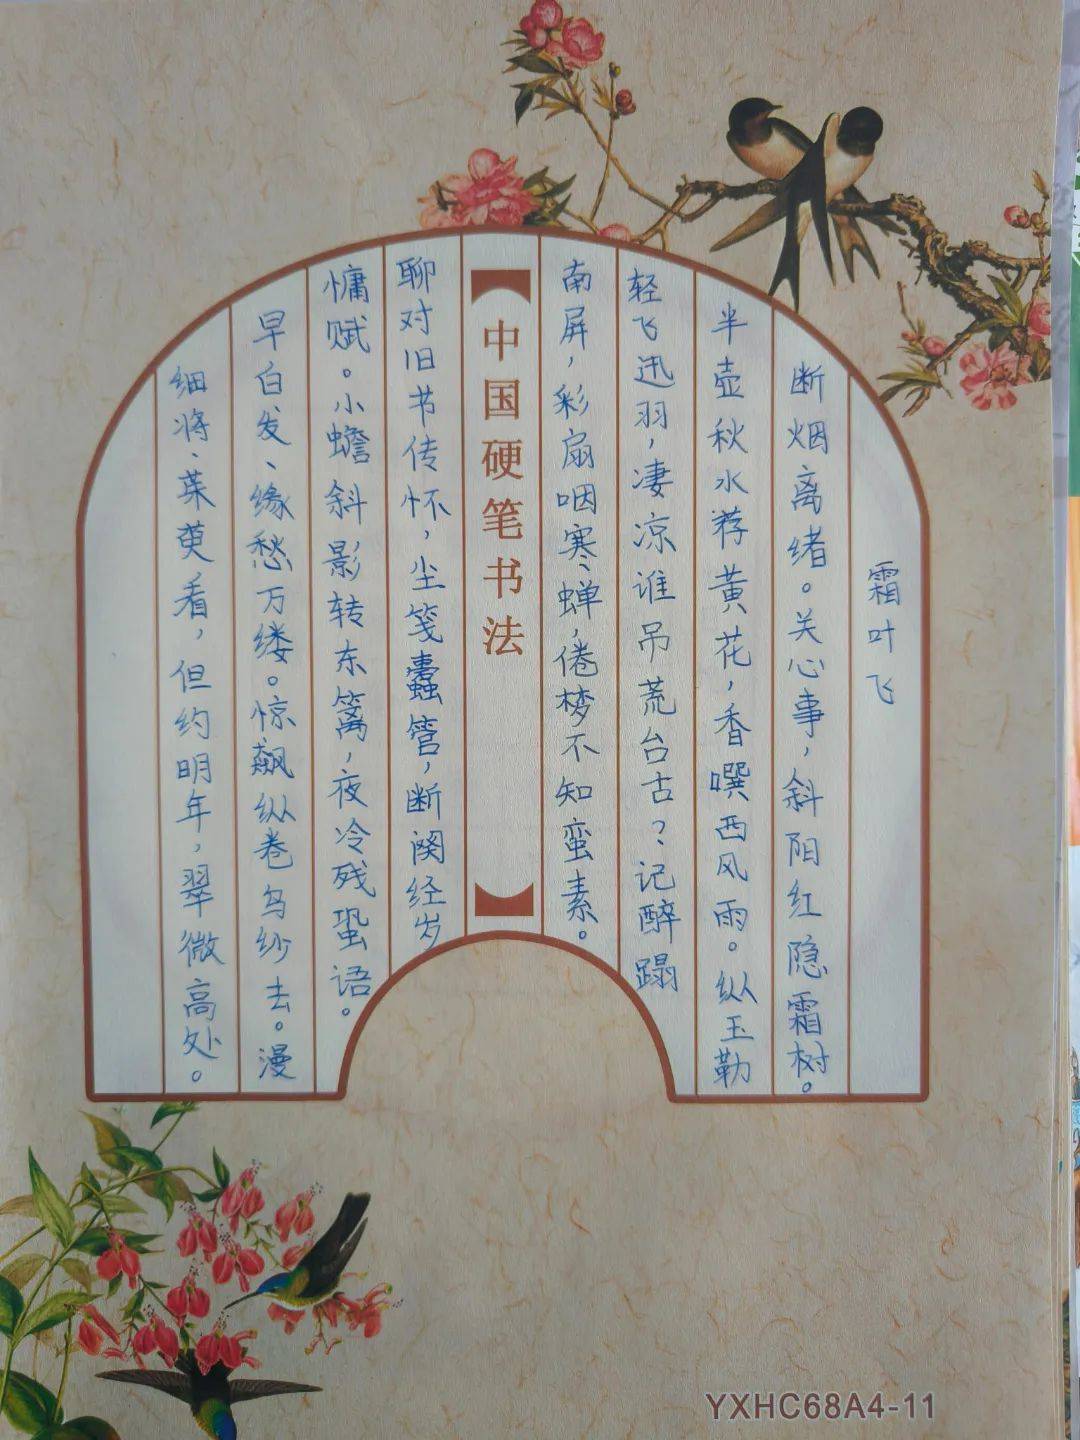 霜叶飞
断烟离绪。关心事,斜阳红隐霜树。
半壶秋水荐黄花,香噀西风雨。纵玉勒
轻飞迅羽,凄凉谁吊荒台古?记醉蹋
南屏,彩扇咽寒蝉,倦梦不知蛮素。
中国硬笔书法
聊对旧书传怀,尘笺蠹管,断阕经岁
慵赋。小蟾斜影转东篱,夜冷残蛩语。
早白发、缘愁万缕。惊飙纵卷乌纱去。漫
细将、茱萸看,但约明年,翠微高处。
YXHC68A4-11